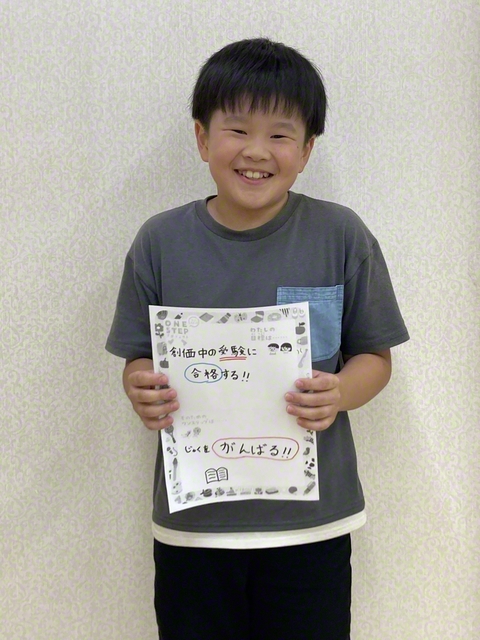 ONE
STEP
わたしの
目標は…
創価中の受験に
合格する!!
じゅくを がんばる!!